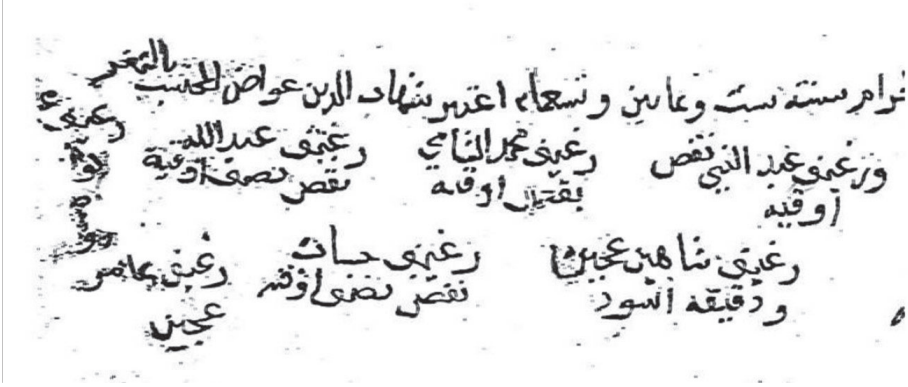 حرام سنة ست وثمانين وتسعمايه اعتبر شهاب الدين عواض المحتسب بالثغر
ورغيف عبد النبي نقص
اوقيه
رغيف محمد الشامي
نقص اوقيه
رغيف عبدالله
نقص نصف اوقية
رغيف
رغيف شاهين عجين
ودقيقه اسود
رغيف حسان
نقص نصف اوقيه
رغيف عامر
عجين